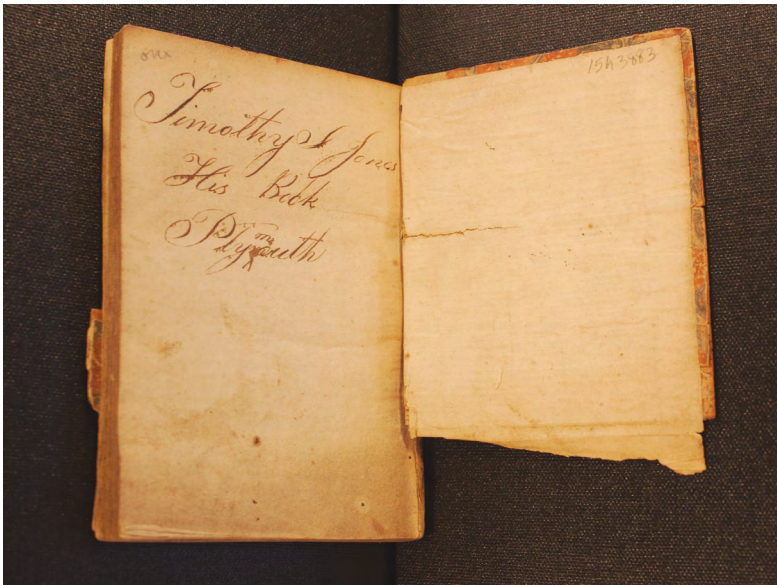 Timothy S Jones
His Book
Plymouth
1543883